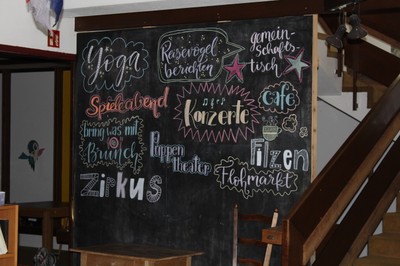 Yoga
Reisevögel
berichten
gemein-
schafts
tisch
Spieleabend
Konzerte
Café
bring was mit
Brunch
Puppen
theater
Filzen
Zirkus
Flohmarkt